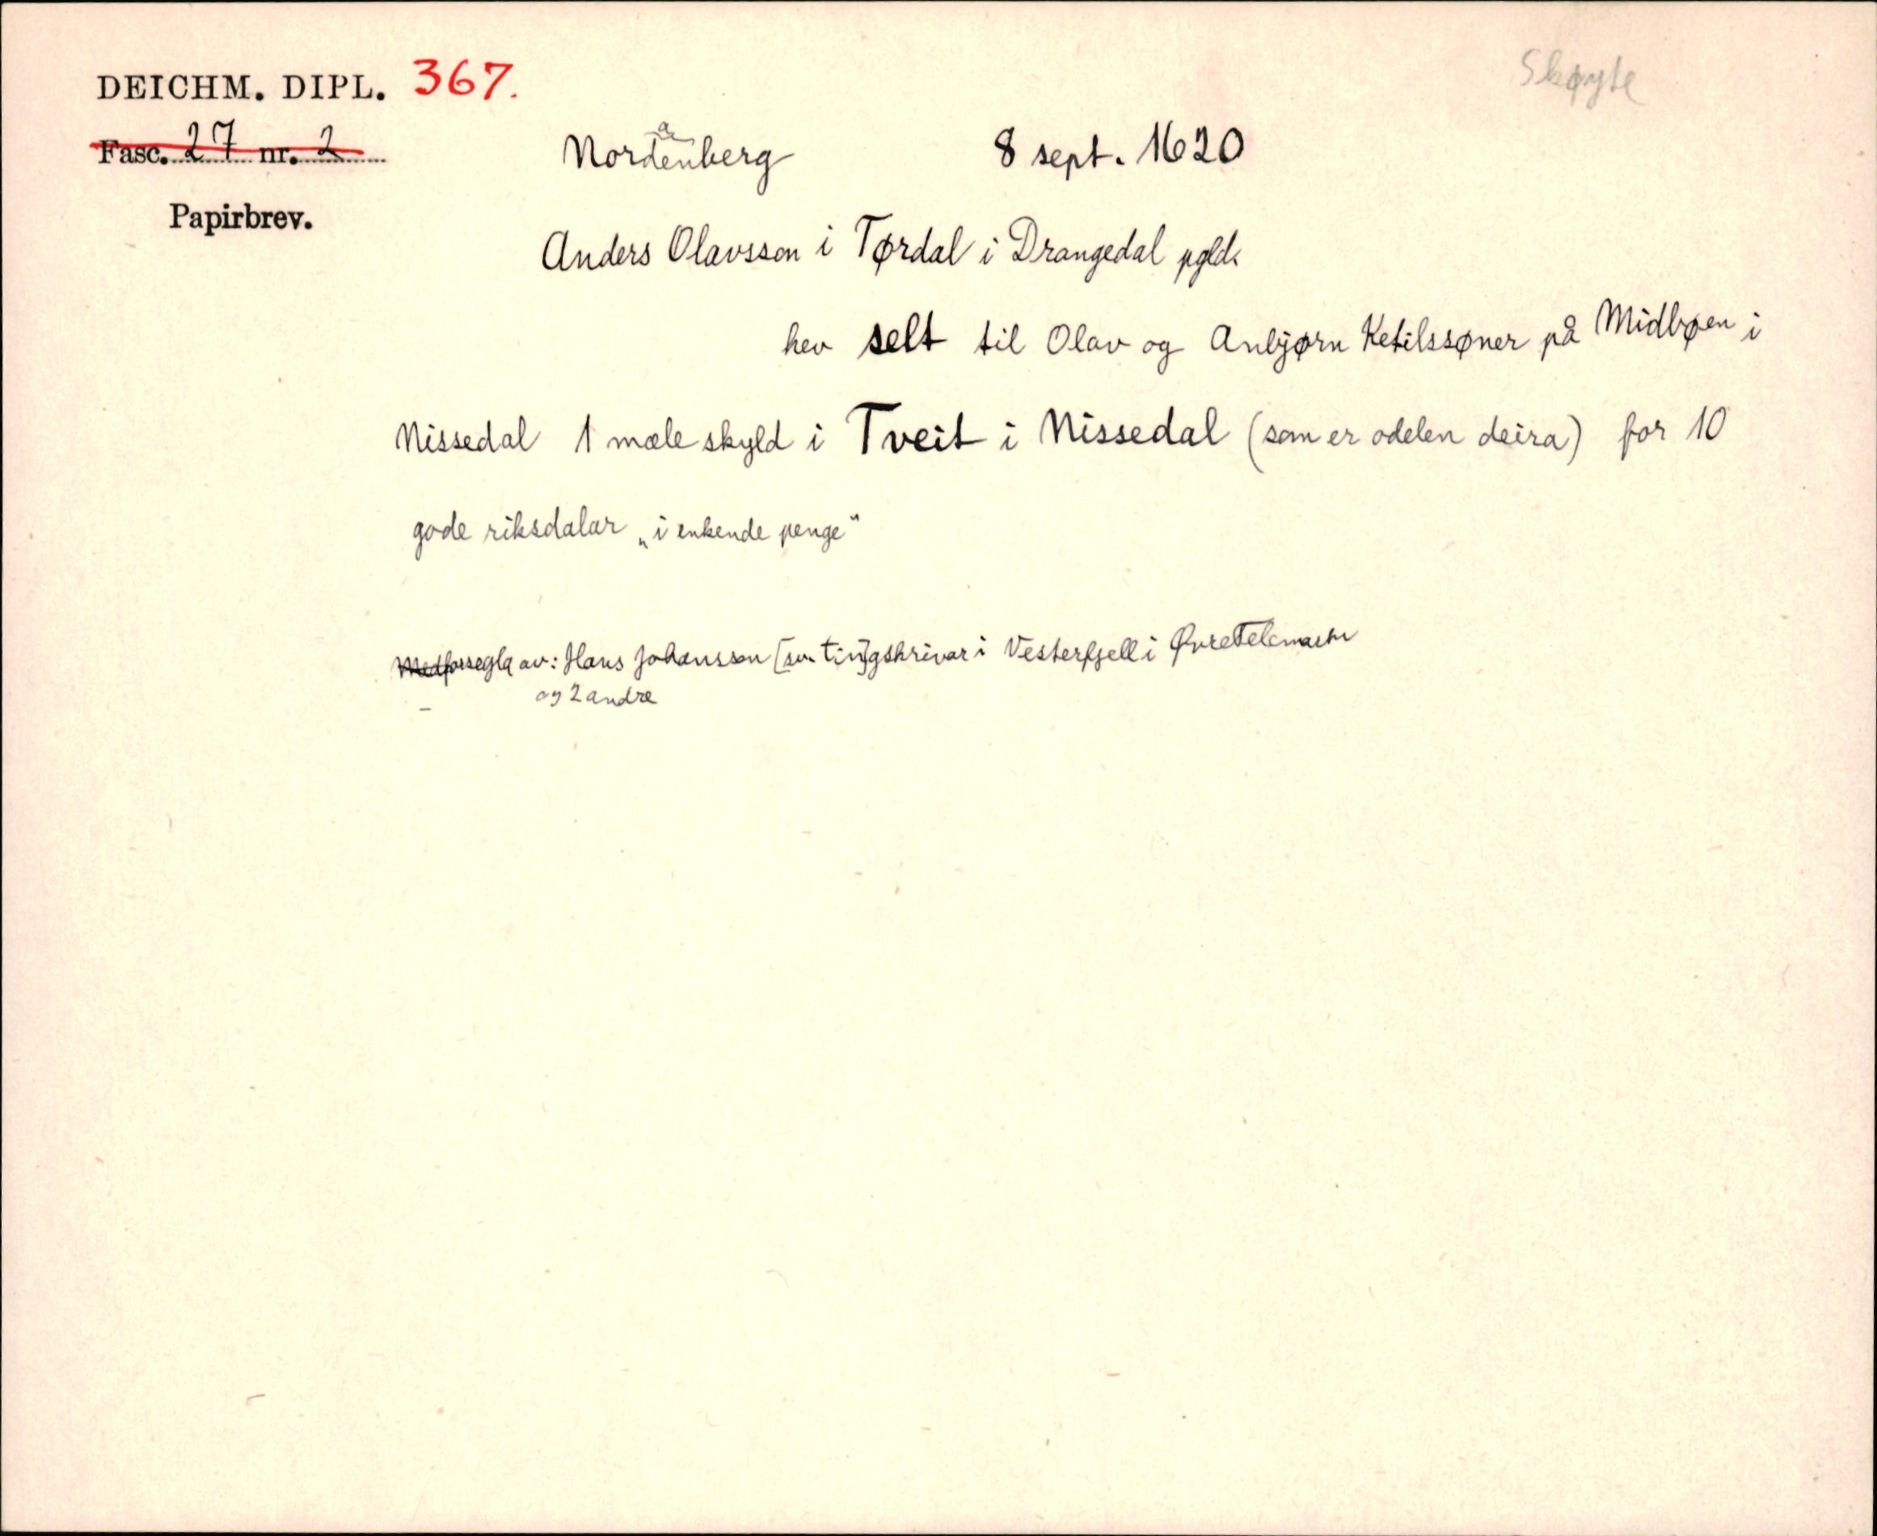 DEICHM. DIPL. 367.
Skøyte
Fasc. 27 nr. 2
Nordenberg 8 sept. 1620
a
Papirbrev.
Anders Olavsson i Tørdal i Drangedal pgld.
hev selt til Olav og Anbjørn Ketilssøner på Midbøen i
Nissedal 1 mæle skyld i Tveit i Nissedal (som er odelen deira) for 10
gode riksdalar „i enkende penge"
Medforsegla av: Hans Johansson [svn ting]skrivar i Vesterfjell i Øvre Telemark
og 2 andre